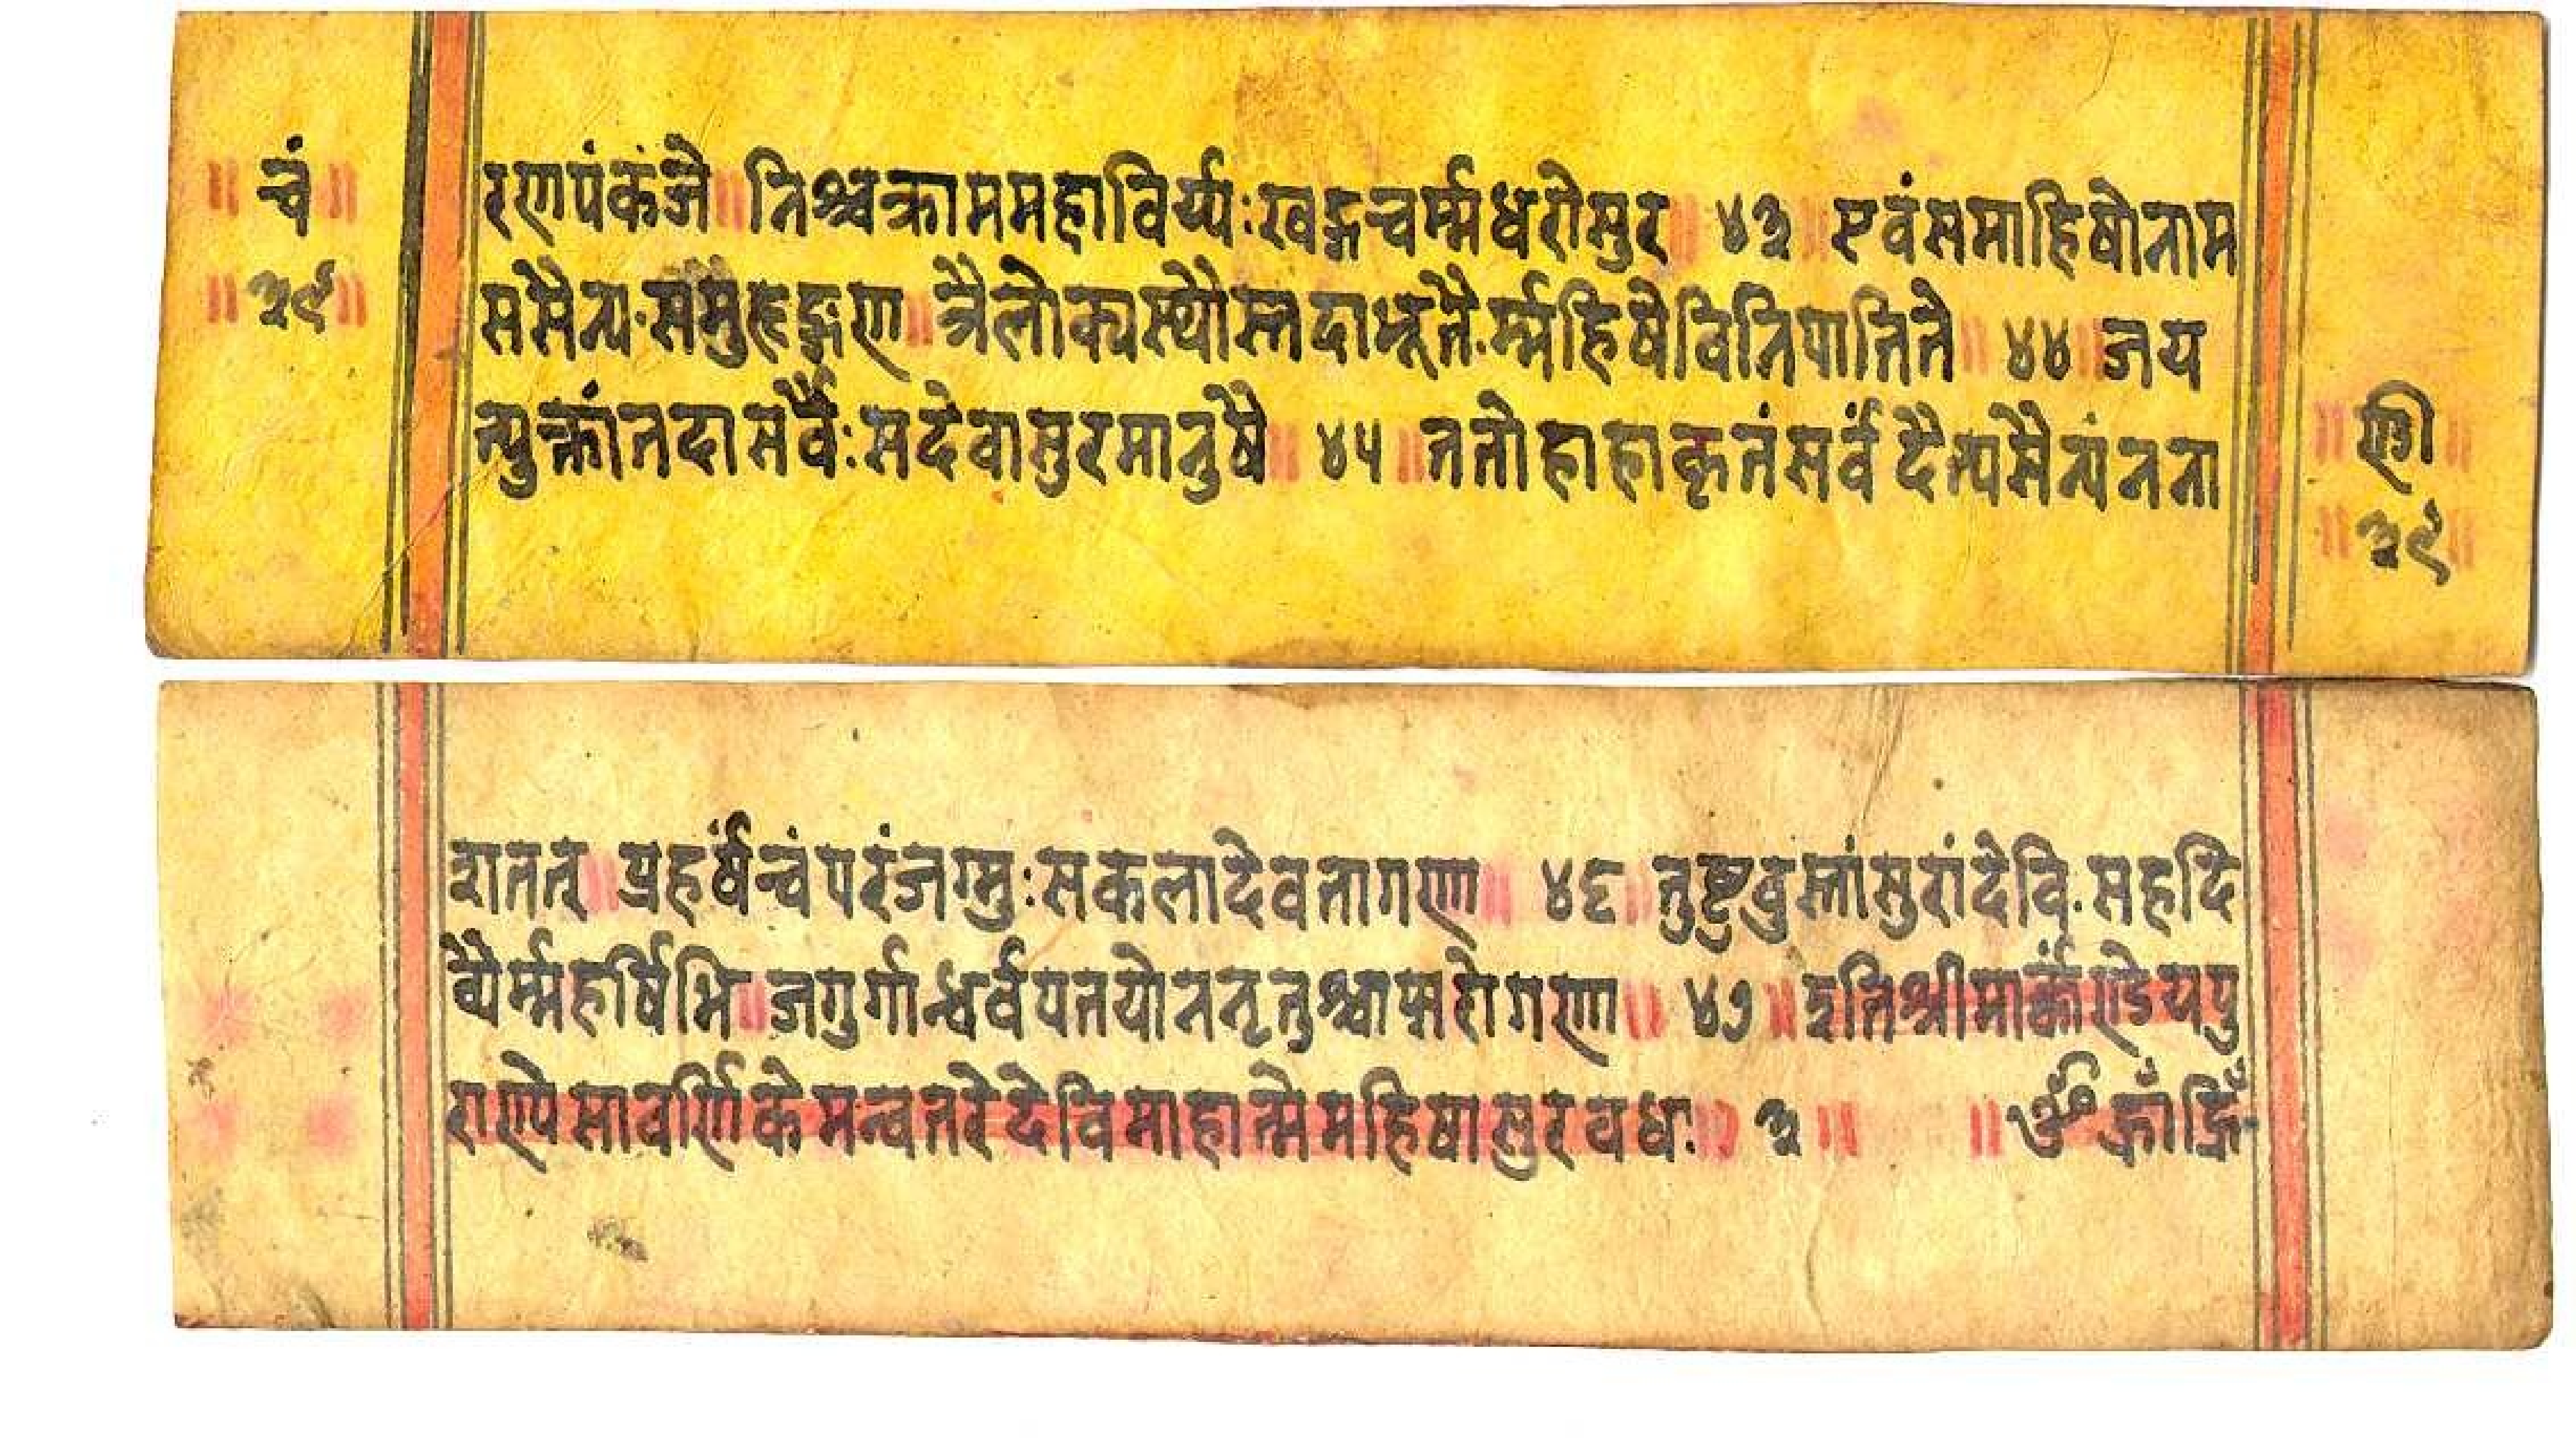 ॥ चं ॥
॥ ३९ ॥
रणपंकजै ॥ निश्चक्राममहाविर्य्यःखड्गचर्म्मधरोसुर ॥ ४३ ॥ एवंसमाहिषोनाम
ससैन्य·समुहृद्गण ॥ त्रैलोक्यस्थौस्तदाभ्नूतै·र्म्महिषैविनिपातितै ॥ ४४ ॥ जय
त्युक्तांतदासर्वैः सदेवासुरमानुषै ॥ ४५ ॥ ततोहाहाकृतंसर्वंदैत्यसैन्यंनना
॥ ण्डी ॥
॥ ३९ ॥
शतत् ॥ प्रहर्षंचंपरंजग्मुःसकलादेवतागणा ॥ ४६ ॥ तुष्टुवुस्तांसुरांदेवि·सहदि
व्यैर्म्महर्षिभि ॥ जगुर्गान्धर्वपतयोननृतुश्चाप्सरोगणा ॥ ४७ ॥ इतिश्रीमार्कंण्डेयपु
राणेसावर्णिकेमन्वतरेदेविमाहात्मेमहिषासुरवधः ॥ ३ ॥ ॥ ॐ क्राँ